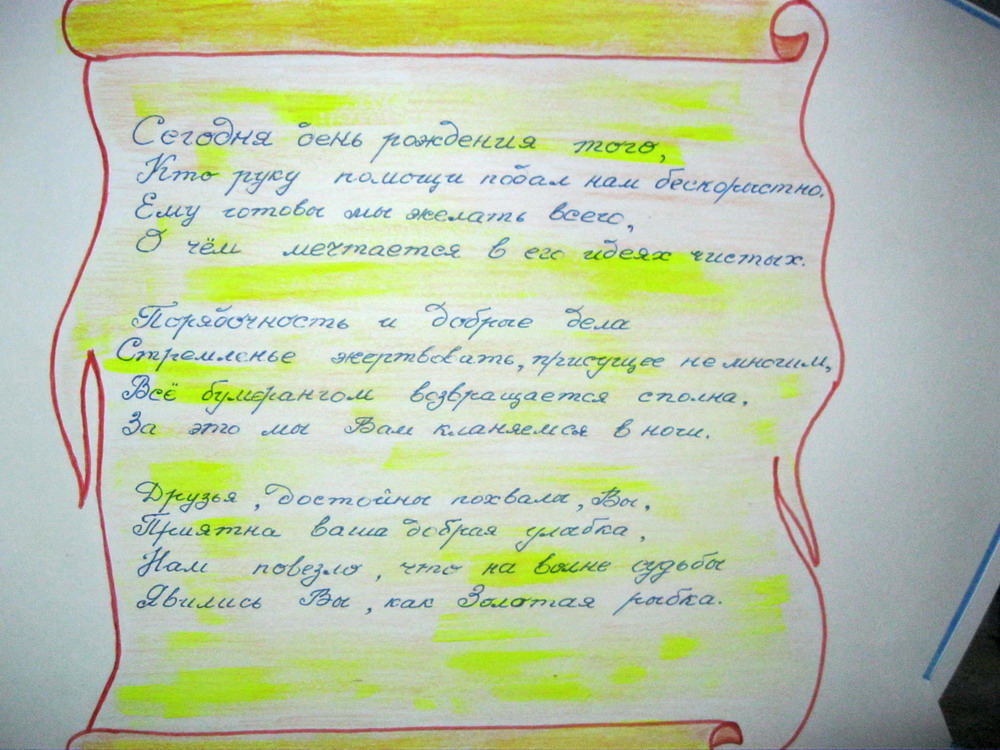 Сегодня день рождения того,
Кто руку помощи подал нам бескорыстно.
Ему готовы мы желать всего,
О чём мечтается в его идеях чистых.
Порядочность и добрые дела
Стремленье жертвовать, присущее немногим,
Всё бумерангом возвращается сполна.
За это мы Вам кланяемся в ноги.
Друзья, достойны похвалы, Вы,
Приятна ваша добрая улыбка,
Нам повезло, что на волне судьбы
Явились Вы, как Золотая рыбка.